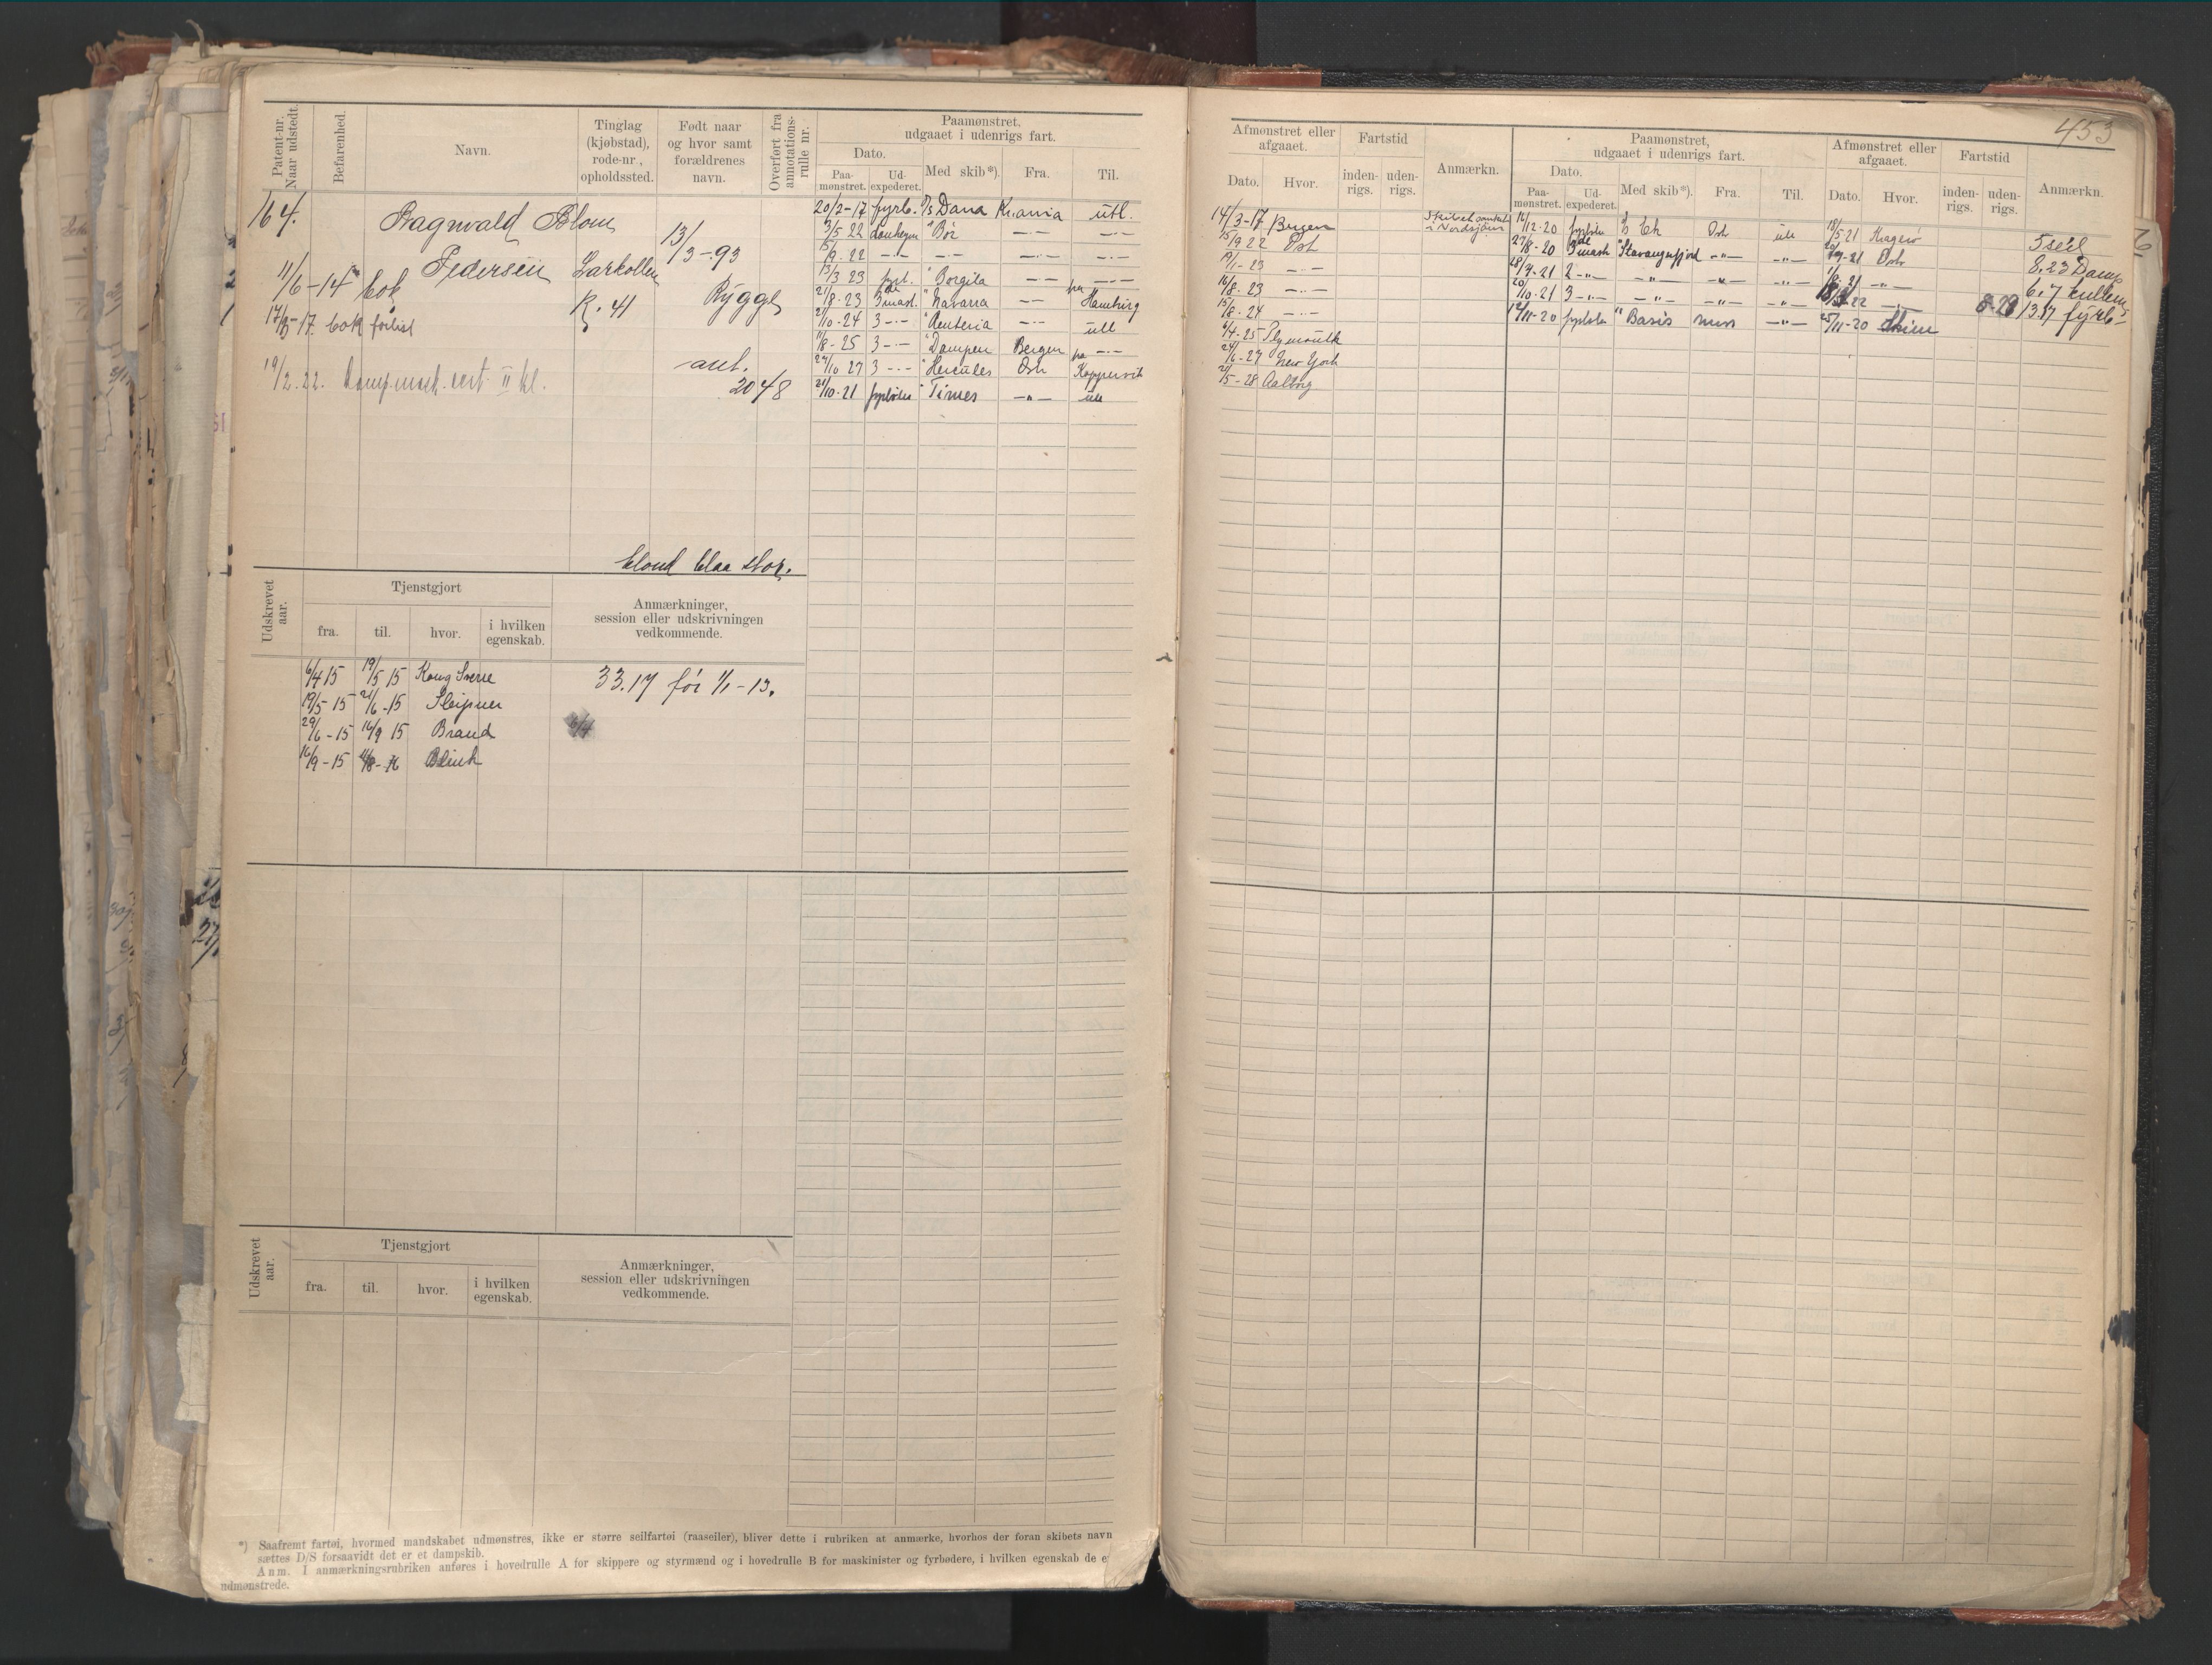 453
Patent-nr. Naar udstedt.
Befarenhed.
Navn.
Tinglag (kjøbstad), rode-nr., opholdssted.
Født naar og hvor samt forældrenes navn.
Overført fra annotations-rulle nr.
Paamønstret, udgaaet i udenrigs fart.
Dato.
Paa-mønstret.
Ud-expederet.
Med skib*).
Fra.
Til.
164.
Ragnvald Blom
Pedersen
Larkollen
R. 41
13/3-93
Rygge
ant.
2048
11/6-14 bok
14/3-17. bok forlist
19/2.22. Dampmask. cert. II kl.
blond blaa
20/2-17 fyrb. D/S Dana Kr.ania utl.
3/5 22 " Bør —·— —·—
15/9. 22 —·— —·— —·— —·—
13/3 23 fyrb. " Borgila —·— —·—
21/8-23 3 mask. " Navarra —·— Hamburg
21/10-24 3 —·— " Renteria —·— utl
11/8-25 3 —·— " Dampen Bergen —·—
24/10 27 3 —·— " Hercules Oslo Koppervik
21/10-21 fyrbøter " Times —"— utl
Udskrevet aar.
Tjenstgjort
fra.
til.
hvor.
i hvilken egenskab.
Anmærkninger, session eller udskrivningen vedkommende.
6/4 15 19/5 15 Kong Sverre
19/5-15 21/6-15 Sleipner
29/6-15 16/9 15 Brand
16/9-15 Blink
33.17 før 1/1-13.
Udskrevet aar.
Tjenstgjort
fra.
til.
hvor.
i hvilken egenskab.
Anmærkninger, session eller udskrivningen vedkommende.
*) Saafremt fartøi, hvormed mandskabet udmønstres, ikke er større seilfartøi (raaseiler), bliver dette i rubriken at anmærke, hvorhos der foran skibets navn
sættes D/S forsaavidt det er et dampskib.
Anm. I anmærkningsrubriken anføres i hovedrulle A for skippere og styrmænd og i hovedrulle B for maskinister og fyrbødere, i hvilken egenskab de e
udmønstrede.
Afmønstret eller afgaaet.
Dato.
Hvor.
Fartstid
inden-rigs.
uden-rigs.
Anmærkn.
Paamønstret, udgaaet i udenrigs fart.
Dato.
Paa-mønstret.
Ud-expederet.
Med skib*).
Fra.
Til.
Afmønstret eller afgaaet.
Dato.
Hvor.
Fartstid
inden-rigs.
uden-rigs.
Anmærkn.
14/3-17 Bergen Skibet omkom i Nordsjøen
15/9 22 Osl
19/1-23 —·—
16/8-23 —·—
15/8-24 —·—
4/4-25 Plymouth
24/6-27 New York
21/5-28 Aalborg
16/12-20 fyrbøter Ek Oslo utl 18/5-21 Kragerø
27/8-20 3 mask " Stavangerfjord —"— —"— Oslo
28/4-21 2 —"— —"— —"— —"— —"—
20/10-21 3 —"— —"— —"— —"— 22 —"—
12/11-20 fyrbøter " Basis Moss —"— 25/11-20 Skien
5 seil
8.23 Damp
6.7 kullemp
13.17 fyrb.